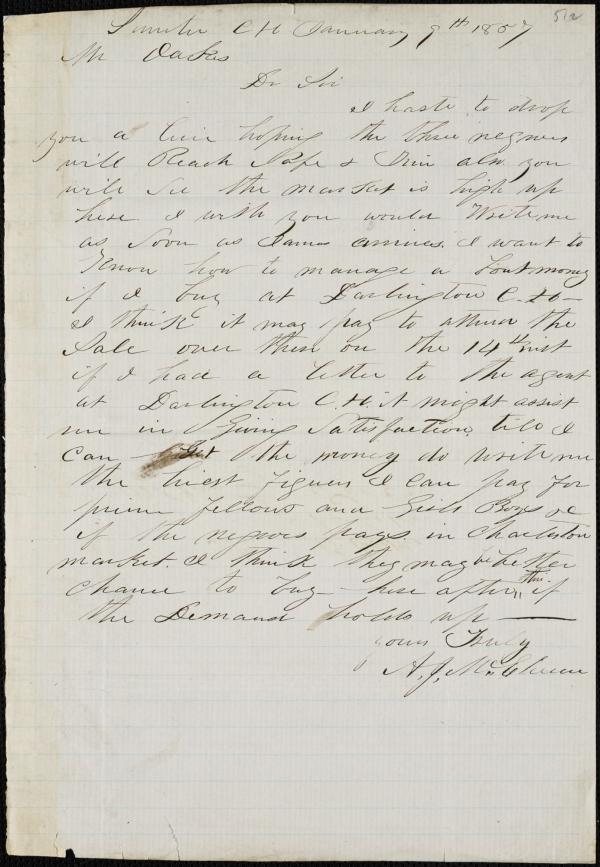 Sumter CH January 9th 1857
512
Mr Oakes
Dr Sir
I haste to drop
you a line hoping the three negroes
will Reach Safe & also you
will See the market is high up
here I wish you would Write me
as Soon as James arrives. I want to
know how to manage a bout money
if I buy at Darlington C. H–
I think it may pay to attend the
Sale over there on the 14th inst
if I had a letter to the agent
at Darlington C.H. it might assist
me in Giving Satisfaction till I
can get the money do write me
the hiest figures I can pay for
prime fellows and Girls Boys &c
if the negroes pays in Charleston
market I think they may be better
chance to buy– here after this if
the Demand holds up —
yours Truly
A. J. McElveen